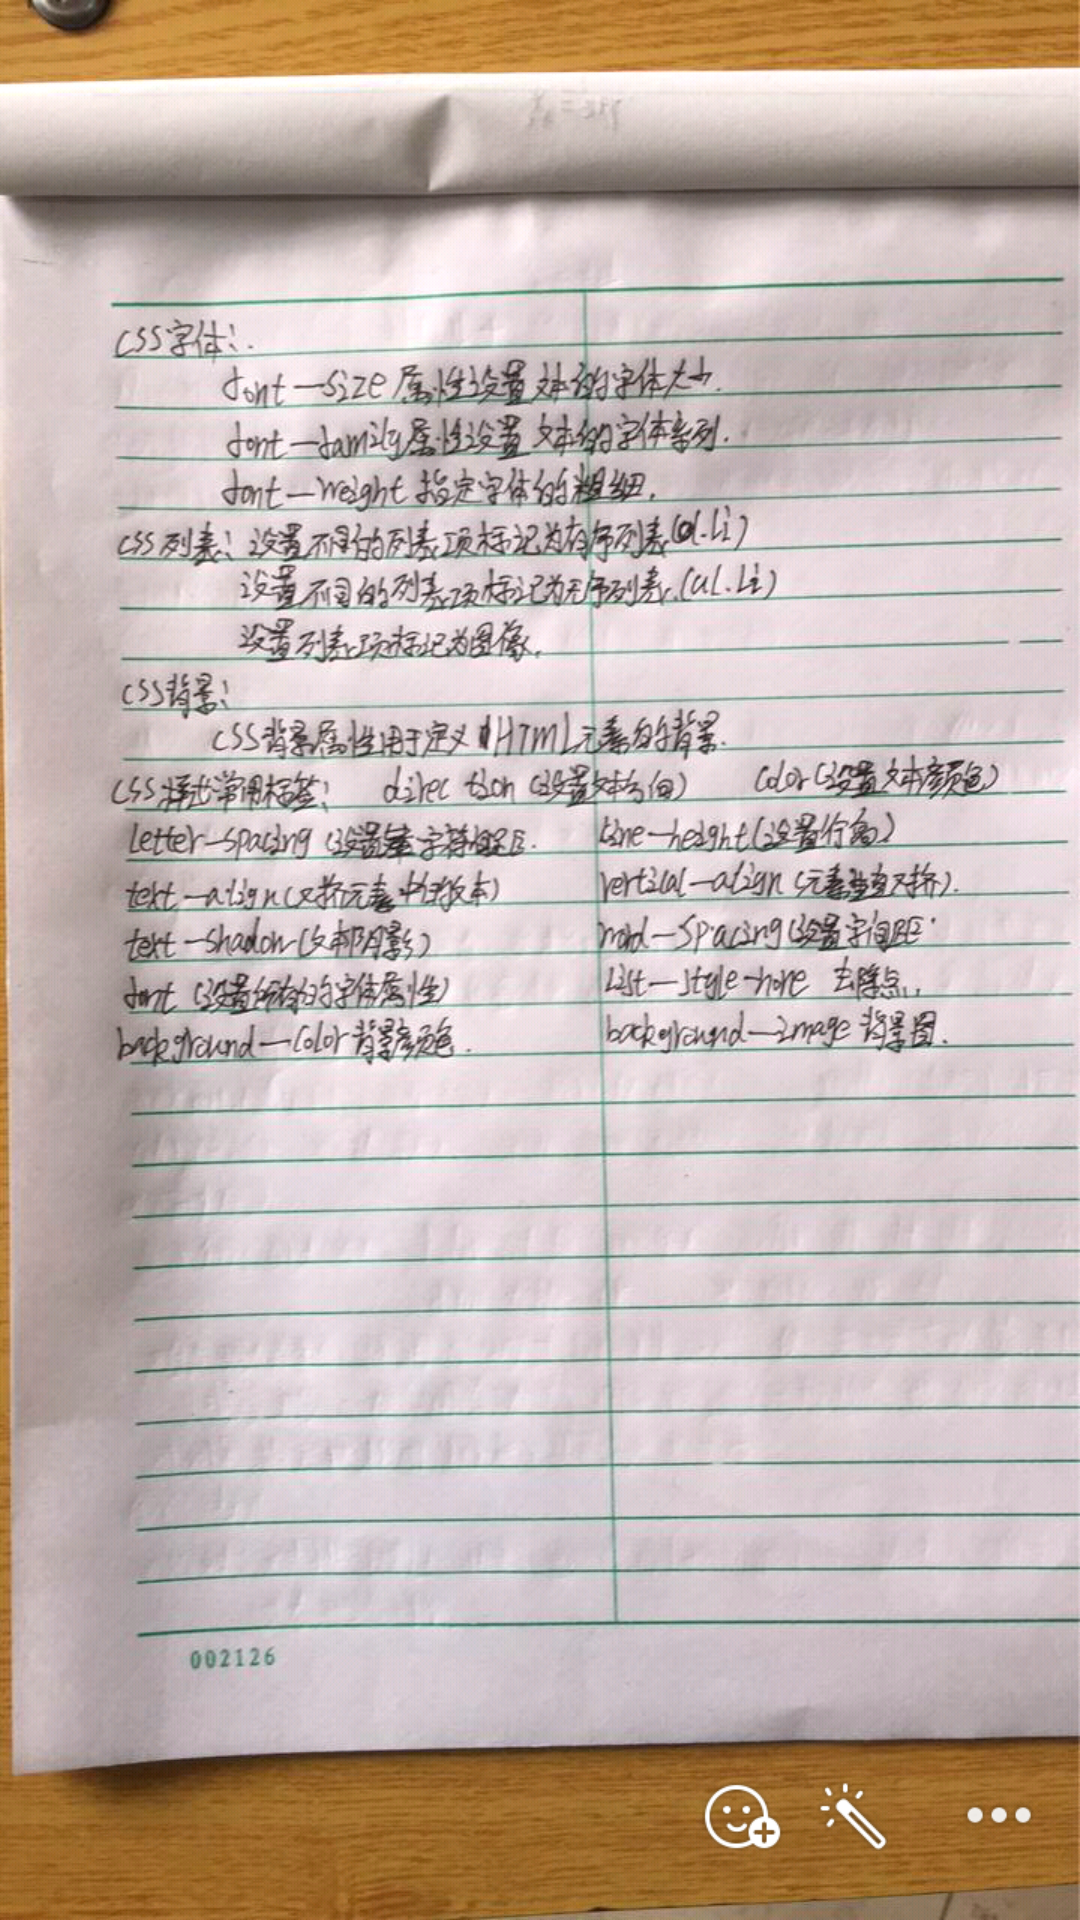 CSS字体:
font-size属性设置文本的字体大小.
font-family属性设置文本的字体系列.
font-weight 指定字体的粗细.
CSS列表: 设置不同的列表项标记为有序列表(ol.li)
设置不同的列表项标记为无序列表.(ul.li)
设置列表项标记为图像.
CSS背景:
CSS背景属性用于定义HTML元素的背景.
CSS样式常用标签: direction (设置文本方向) color(设置文本颜色)
letter-spacing (设置字符间距. line-height(设置行高)
text-align(对齐元素中的文本) vertical-align (元素垂直对齐).
text-shadow(文本阴影) word-spacing(设置字间距.
font (设置所有的字体属性) list-style-none 去除点.
background-color 背景颜色. background-image 背景图.
002126